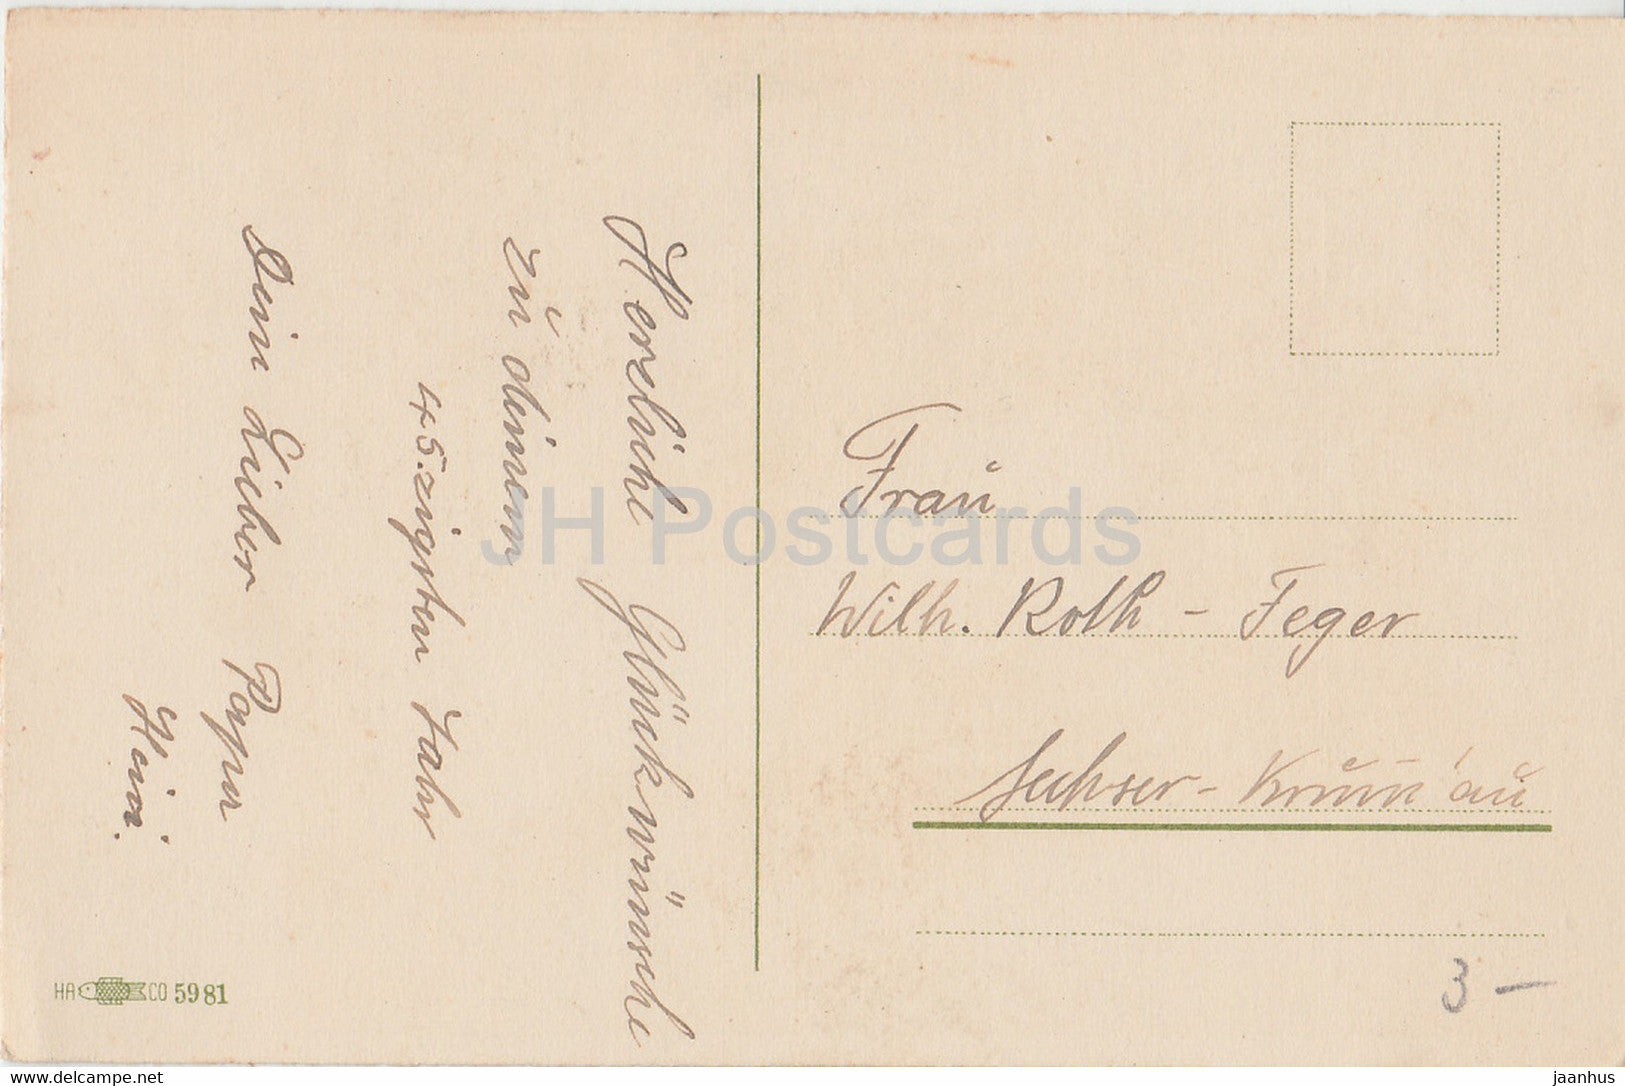 Herzliche Glückwünsche
zu deinem
45.zigsten Jahr
Dein Lieber Papa
Heini.
Frau
Wilh. Roth - Feger
HA CO 5981
3 -
JH Postcards
delcampe.net
jaanhus